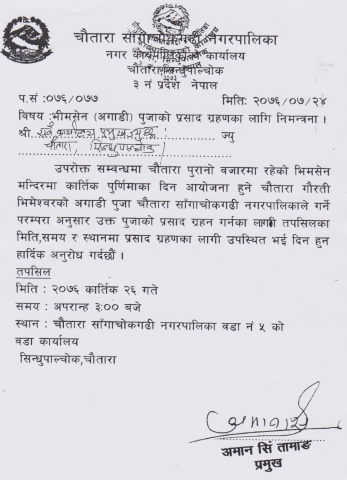 चौतारा साँगाचोकगढी नगरपालिका
नगर कार्यपालिकाको कार्यालय
चौतारा,सिन्धुपाल्चोक
३ नं प्रदेश नेपाल
प.सं :०७६/०७७ मिति: २०७६/०७/२४
विषय :भीमसेन (अगाडी) पुजाको प्रसाद ग्रहणका लागि निमन्त्रना ।
श्री ज्यु
चौतारा, सिन्धुपाल्चोक
उपरोक्त सम्वन्धमा चौतारा पुरानो वजारमा रहेको भिमसेन
मन्दिरमा कार्तिक पुर्णिमाका दिन आयोजना हुने चौतारा गौरती
भिमेश्वरको अगाडी पुजा चौतारा साँगाचोकगढी नगरपालिकाले गर्ने
परम्परा अनुसार उक्त पुजाको प्रसाद ग्रहन गर्नका लागी तपसिलका
मिति,समय र स्थानमा प्रसाद ग्रहणका लागी उपस्थित भई दिन हुन
हार्दिक अनुरोध गर्दछौं ।
तपसिल
मिति : २०७६ कार्तिक २६ गते
समय : अपरान्ह ३:०० बजे
स्थान : चौतारा साँगाचोकगढी नगरपालिका वडा नं ५ को
वडा कार्यालय
सिन्धुपाल्चोक,चौतारा
अमान सिं तामाङ
प्रमुख